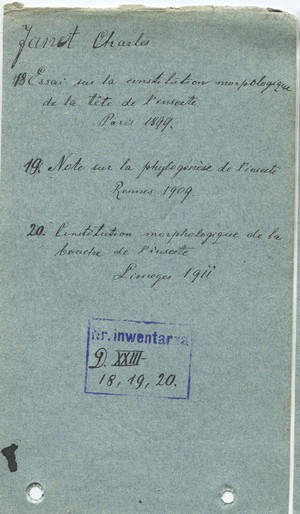 Janet Charles
18 Essai sur la constitution morphologique
de la tête de l'insecte
Paris 1899.
19. Note sur la phylogénèse de l'insecte
Rennes 1909.
20. Constitution morphologique de la
bouche de l'insecte
Limoges 1911
Nr. inwentarza
D. XXIII-
18, 19, 20.